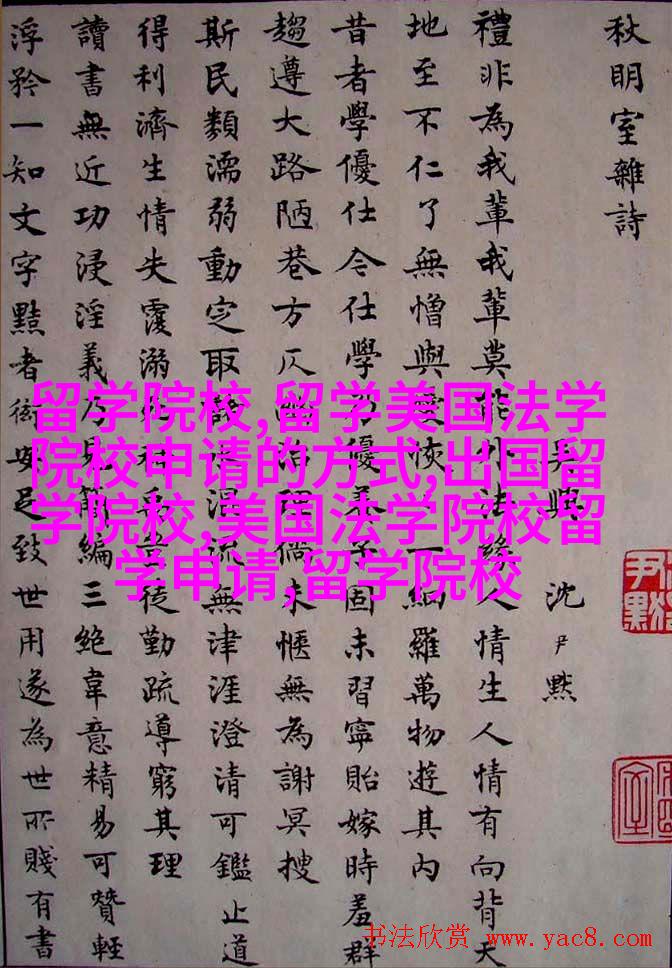 秋明室雜詩
吳興 沈尹默
禮非為我輩我輩莫能外法緣人情生人情有向背天
地至不仁了無憎與愛恢一網羅萬物遊其內
昔者學優仕今仕學乃優養子固未習寧貽嫁時羞群
趨遵大路陋巷方仄治理儻未愜無為謝冥搜
斯民類濡弱動定取混無津涯澄清可鑑止道
得利濟生情失覆溺禹豈徒勤疏導窮其理
讀書無近功浸淫義乃見簡編三絕韋意精易可贊輕
浮矜一知文字黠者衒安足致世用遂為世所賤有書
留学院校,留学美国法学
院校申请的方式,出国留
学院校,美国法学院校留
学申请,留学院校
尹默
书法欣赏 www.yac8.com